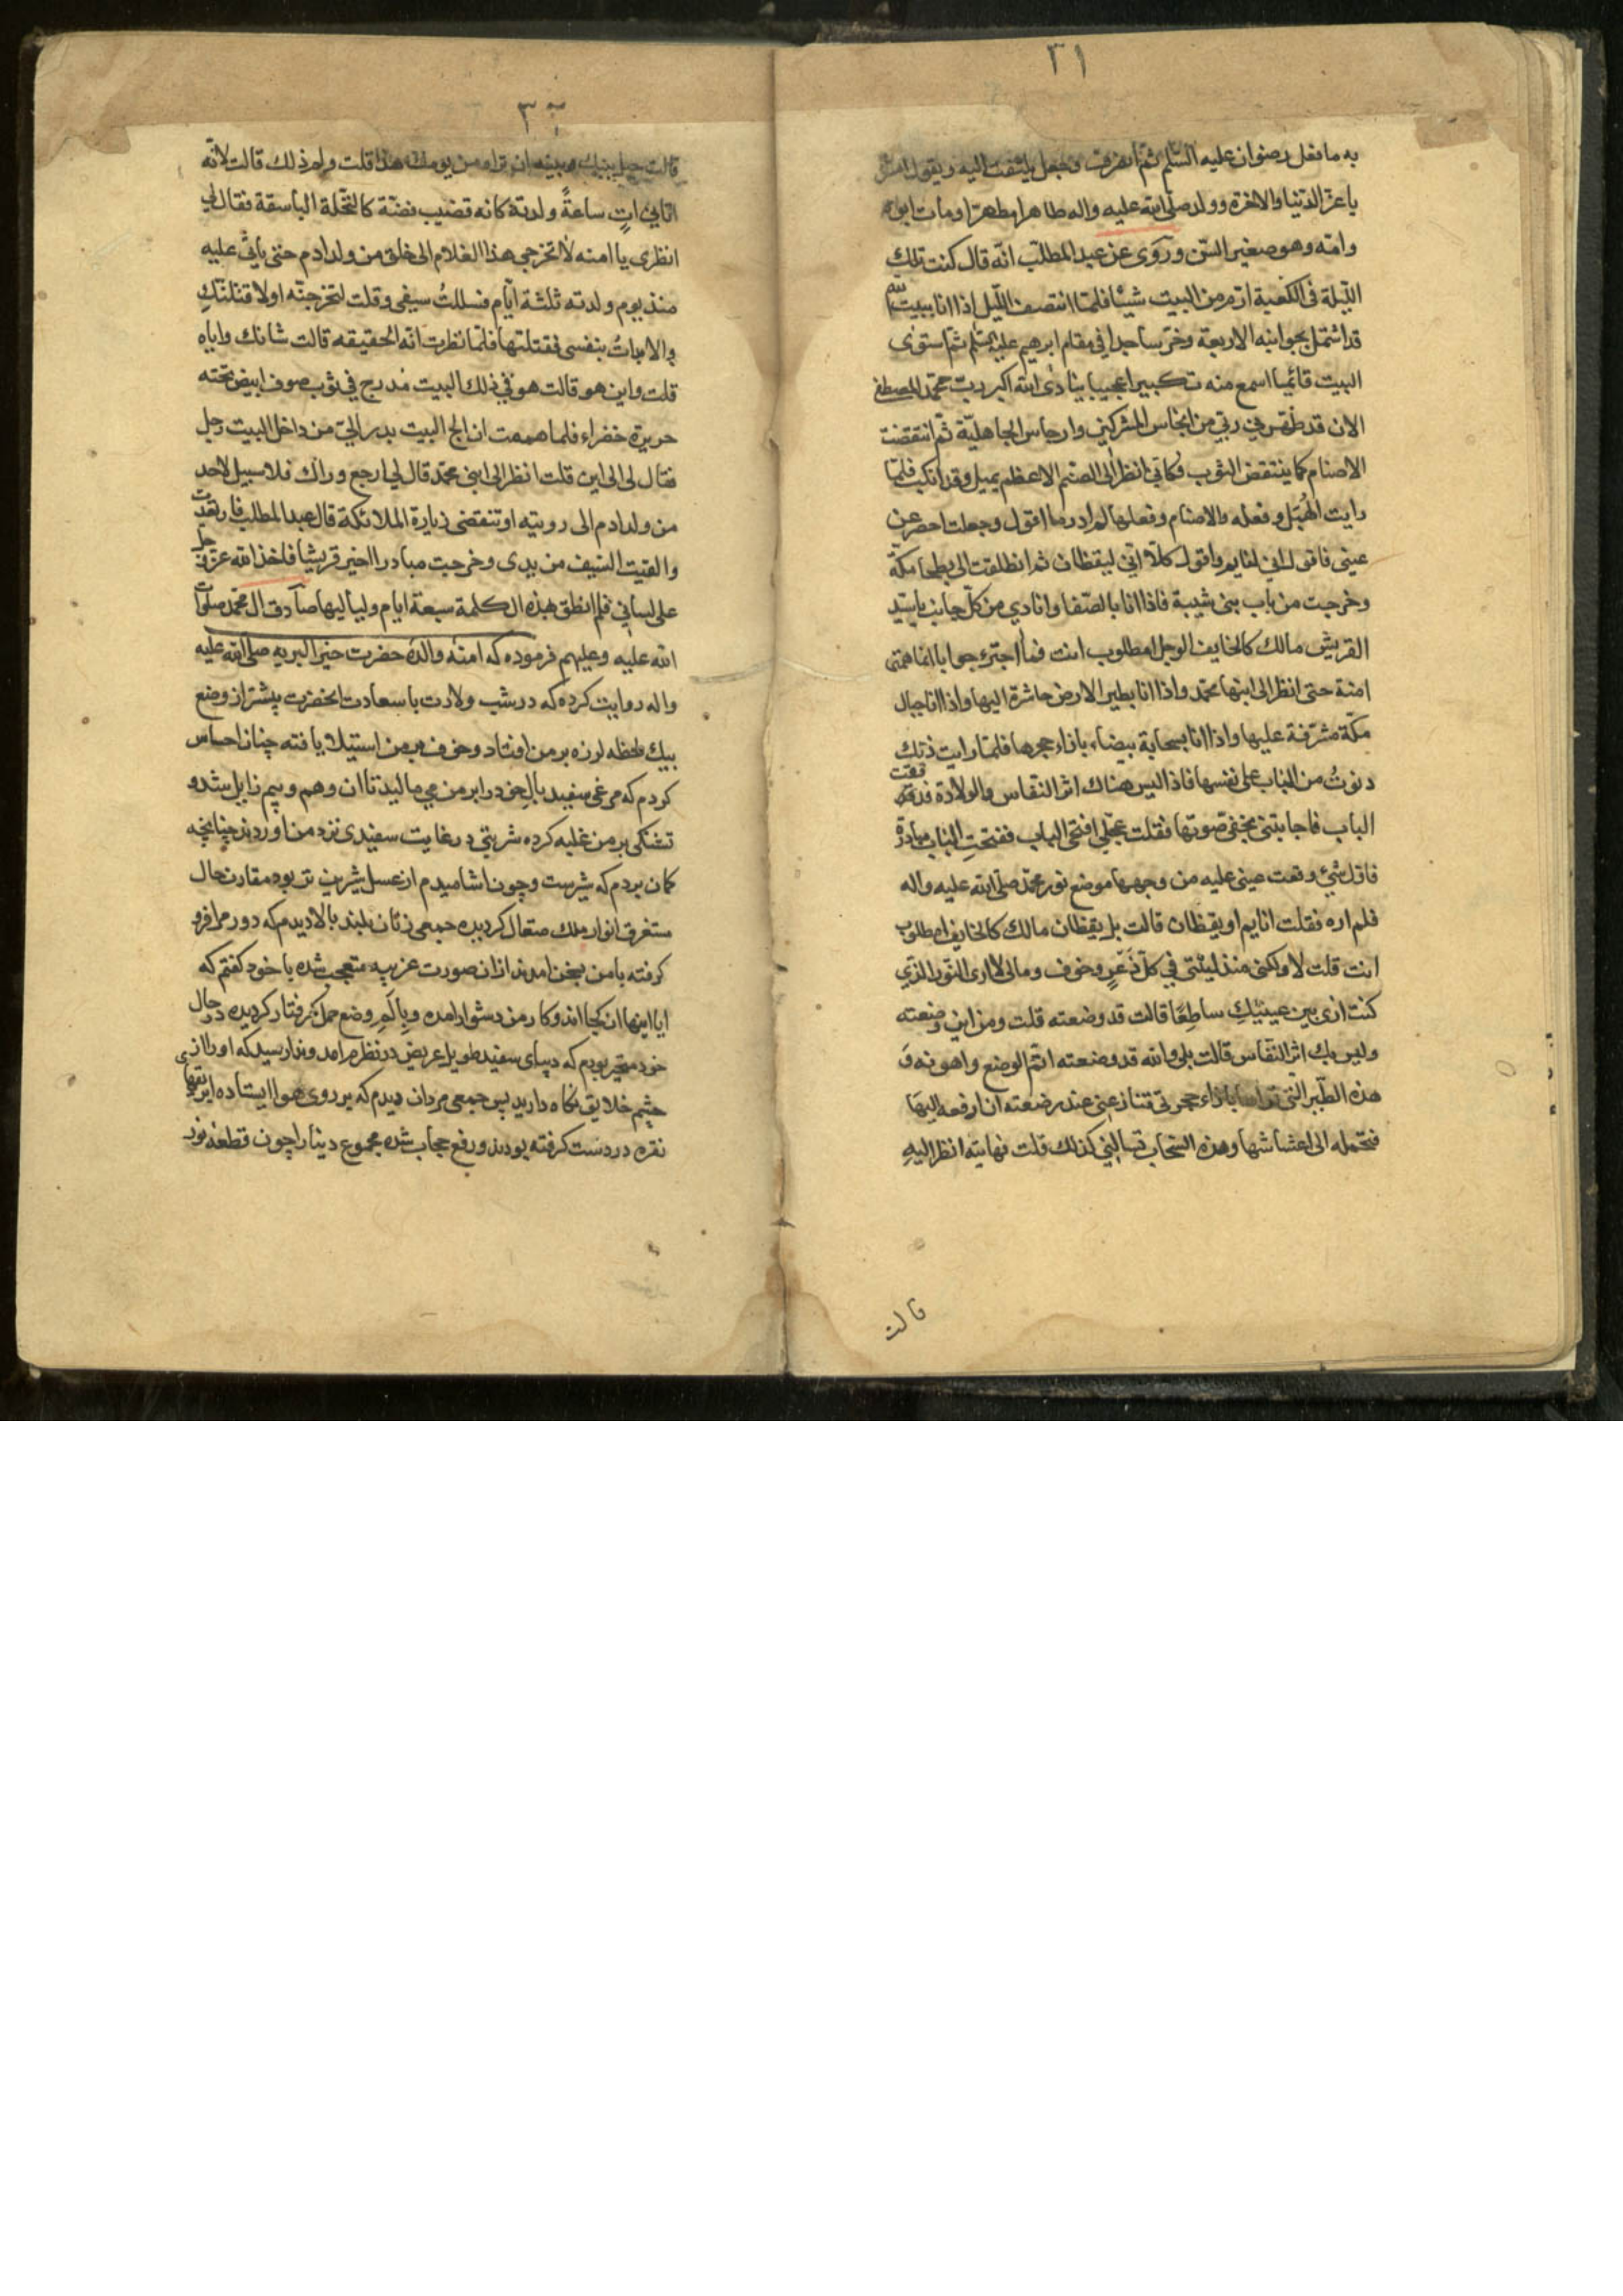 ٣١
به ما فعل رضوان عليه السّلم ثم انصرف وجعل يلتفت اليه ويقول ابشر
يا عزّ الدّنيا والاخرة وولد صلّى الله عليه واله طاهرا مطهرّا ومات ابوه
وامّه وهو صغير السّن وروى عن عبد المطلّب انّه قال كنت تلك
اللّيلة فى الكعبة ارّم من البيت شيئا فلمّا انتصف اللّيل اذا انا ببيت الله
قد اشتمل بجوانبه الاربعة وخرّ ساجدا فى مقام ابرهيم عليه السّلم ثمّ استوى
البيت قائما اسمع منه تكبيرا عجيبا ينادى الله اكبر ربّ محمّد المصطفى
الان قد طهّرنى ربّى من انجاس المشركين وارجاس الجاهليّة ثمّ انتقضت
الاصنام كما ينتقض الثوب وكانّى انظر الى الصّنم الاعظم يميل وقد انكبّ فلمّا
رايت الهُبَل وفعله والاصنام وفعلها لم ادر ما اقول وجعلت احصر عن
عينى فاقول انى لنايم واقول كلّا انّى ليقظان ثم انطلقت الى بطحا مكّة
وخرجت من باب بنى شيبة فاذا انا بالصّفا وانادي من كلّ جانب يا سيّد
القريش مالك كالخايف الوجل امطلوب انت فما اجترء جوابا انما همتى
امنة حتى انظر الى ابنها محمّد واذا انا بطير الارض حاشرة اليها واذا انا جبال
مكّة مشرفة عليها واذا انا بسحابة بيضاء بازاء حجرها فلمّا رايت ذلك
دنوتُ من الباب على نفسها فاذا ليس هناك اثر النّفاس والولادة فدققت
الباب فاجابتنى بخفى صوتها فقلت عجّلى افتحى الباب ففتحتِ الباب مبادرة
فاوّل شئ وقعت عينى عليه من وجهها موضع نور محمّد صلّى الله عليه واله
فلم اره فقلت انايم او يقظان قالت بل يقظان مالك كالخايف امطلوب
انت قلت لا ولكنى منذ ليلتى في كلّ ذعرٍ وخوف ومالى لا ارى النّور الّذي
كنت ارى بين عينيْكِ ساطِعًا قالت قد وضعته قلت ومن اين وضعته
وليس بك اثر النّفاس قالت بلى والله قد وضعته اتمّ الوضع واهونه وَ
هذه الطّير الّتى تراها بازاء حجرتى تنازعنى عند رضعته ان ارفعه اليها
فتحمله الى اعشاشها وهذه السّحاب تسالنى كذلك قلت فهاتيه انظر اليهِ
قالت
٣٢
قالت حيل بينك وبينه ان تراه من يومك هذا قلت ولم ذلك قالت لانّه
اتانى اتٍ ساعةً ولدته كانه قضيب فضّة كالنّخلة الباسقة فقال لي
انظرى يا امنه لا تخرجى هذا الغلام الى خلق من ولد ادم حتى ياتى عليه
منذ يوم ولدته ثلثة ايّام فسللتُ سيفى وقلت لتخرجنّه اولا قتلتّكِ
بنفسى فلمّا نظرت انّه الحقيقه قالت شانك واياه
قلت واين هو قالت هو في ذلك البيت مُدرج في ثوب صوف ابيض تحته
حريرة خضراء فلما هممت ان الج البيت بدر الىّ من داخل البيت رجل
فقال لى الى اين قلت انظر الى ابنى محمّد قال لى ارجع وراك فلا سبيل لاحد
من ولد ادم الى رويته او تنقضى زيارة الملائكة قال عبد المطلب فارتعدت
والقيت السّيف من يدى وخرجت مبادرا اخبر قريشا فاخذ الله عزّ وجلّ
على لسانى فلم انطق بهذه الكلمة سبعة ايام ولياليها صادق ال محمّد صلوات
الله عليه وعليهم فرموده كه امنه والدۀ حضرت خير البريه صلى الله عليه
واله روايت كرده كه در شب ولادت با سعادت انحضرت پيشتر از وضع
بيك لحظه لرزه بر من افتاد وخوف بر من استيلا يافته چنان احساس
كردم كه مرغى سفيد بال خود را بر من مى ماليد تا ان وهم وبيم زايل شد و
تشنكى بر من غلبه كرده شربتى در غايت سفيدى نزد من اوردند چنانچه
كمان بردم كه شيرست وچون اشاميدم از عسل شيرين تر بود مقارن حال
مستغرق انوار ملك متعال كرديده جمعى زنان بلند بالا ديدم كه دور مرا فرو
كرفته با من بسخن امدند از ان صورت غريبه متعجب شده با خود كفتم كه
ايا اينها از كجا اند وكار من دشوار امده وبالم وضع حمل كرفتار كرديده در حال
خود متحير بودم كه ديباى سفيد طويل عريض در نظرم امد وندا رسيد كه او را از
چشم خلايق نكاه داريد پس جمعى مردان ديدم كه بر روى هوا ايستاده ابريقهاى
نقره در دست كرفته بودند ورفع حجاب شده مجموع دنيا را چون قطعه نور